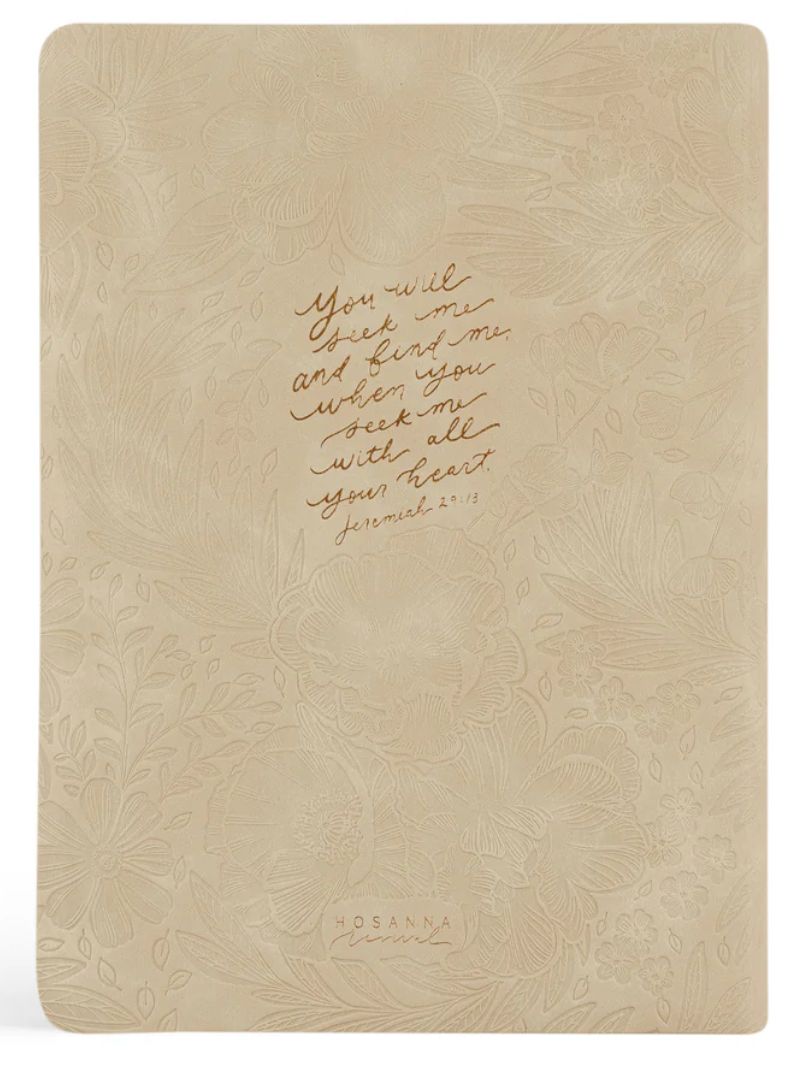 You will
seek me
and find me,
when you
seek me
with all
your heart.
Jeremiah 29:13
HOSANNA
revival